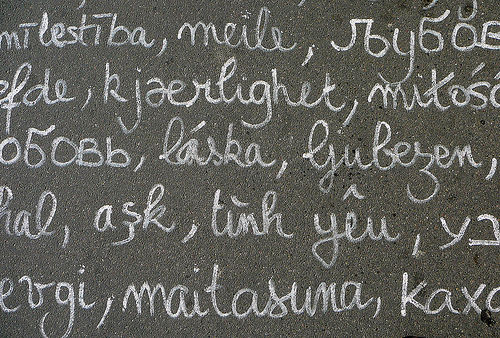 mīlestība, meile, љубов
efde, kjærlighet, miłość
юбовь, láska, ljubezen,
hal, aşk, tình yêu,
evgi, maitasuna,